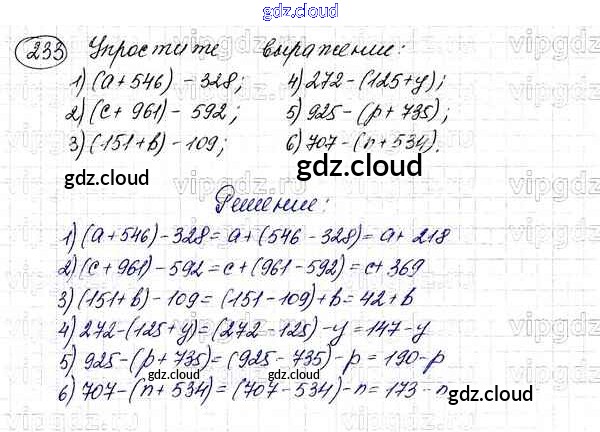 gdz.cloud
gdz.cloud
233 Упростите выражение:
1) (a + 546) - 328; 4) 272 - (125 + y);
2) (c + 961) - 592; 5) 925 - (p + 735);
3) (151 + b) - 109; 6) 707 - (n + 534).
gdz.cloud
gdz.cloud
Решение:
1) (a + 546) - 328 = a + (546 - 328) = a + 218
2) (c + 961) - 592 = c + (961 - 592) = c + 369
3) (151 + b) - 109 = (151 - 109) + b = 42 + b
4) 272 - (125 + y) = (272 - 125) - y = 147 - y
5) 925 - (p + 735) = (925 - 735) - p = 190 - p
gdz.cloud
6) 707 - (n + 534) = (707 - 534) - n = 173 - n
gdz.cloud